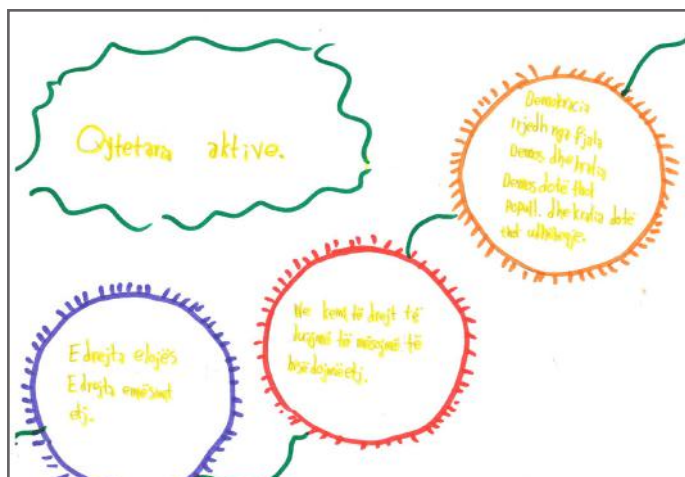 Qytetara aktive.
Demokracia
rrjedh nga fjala
Demos dhe kratia
Demos dotë thot
popull. dhe kratia dotë
thot udhëheqje.
Ne kemi të drejt të
luajmë të mësojmë të
bisëdojmë etj.
E drejta elojës
E drejta emësimit
etj.